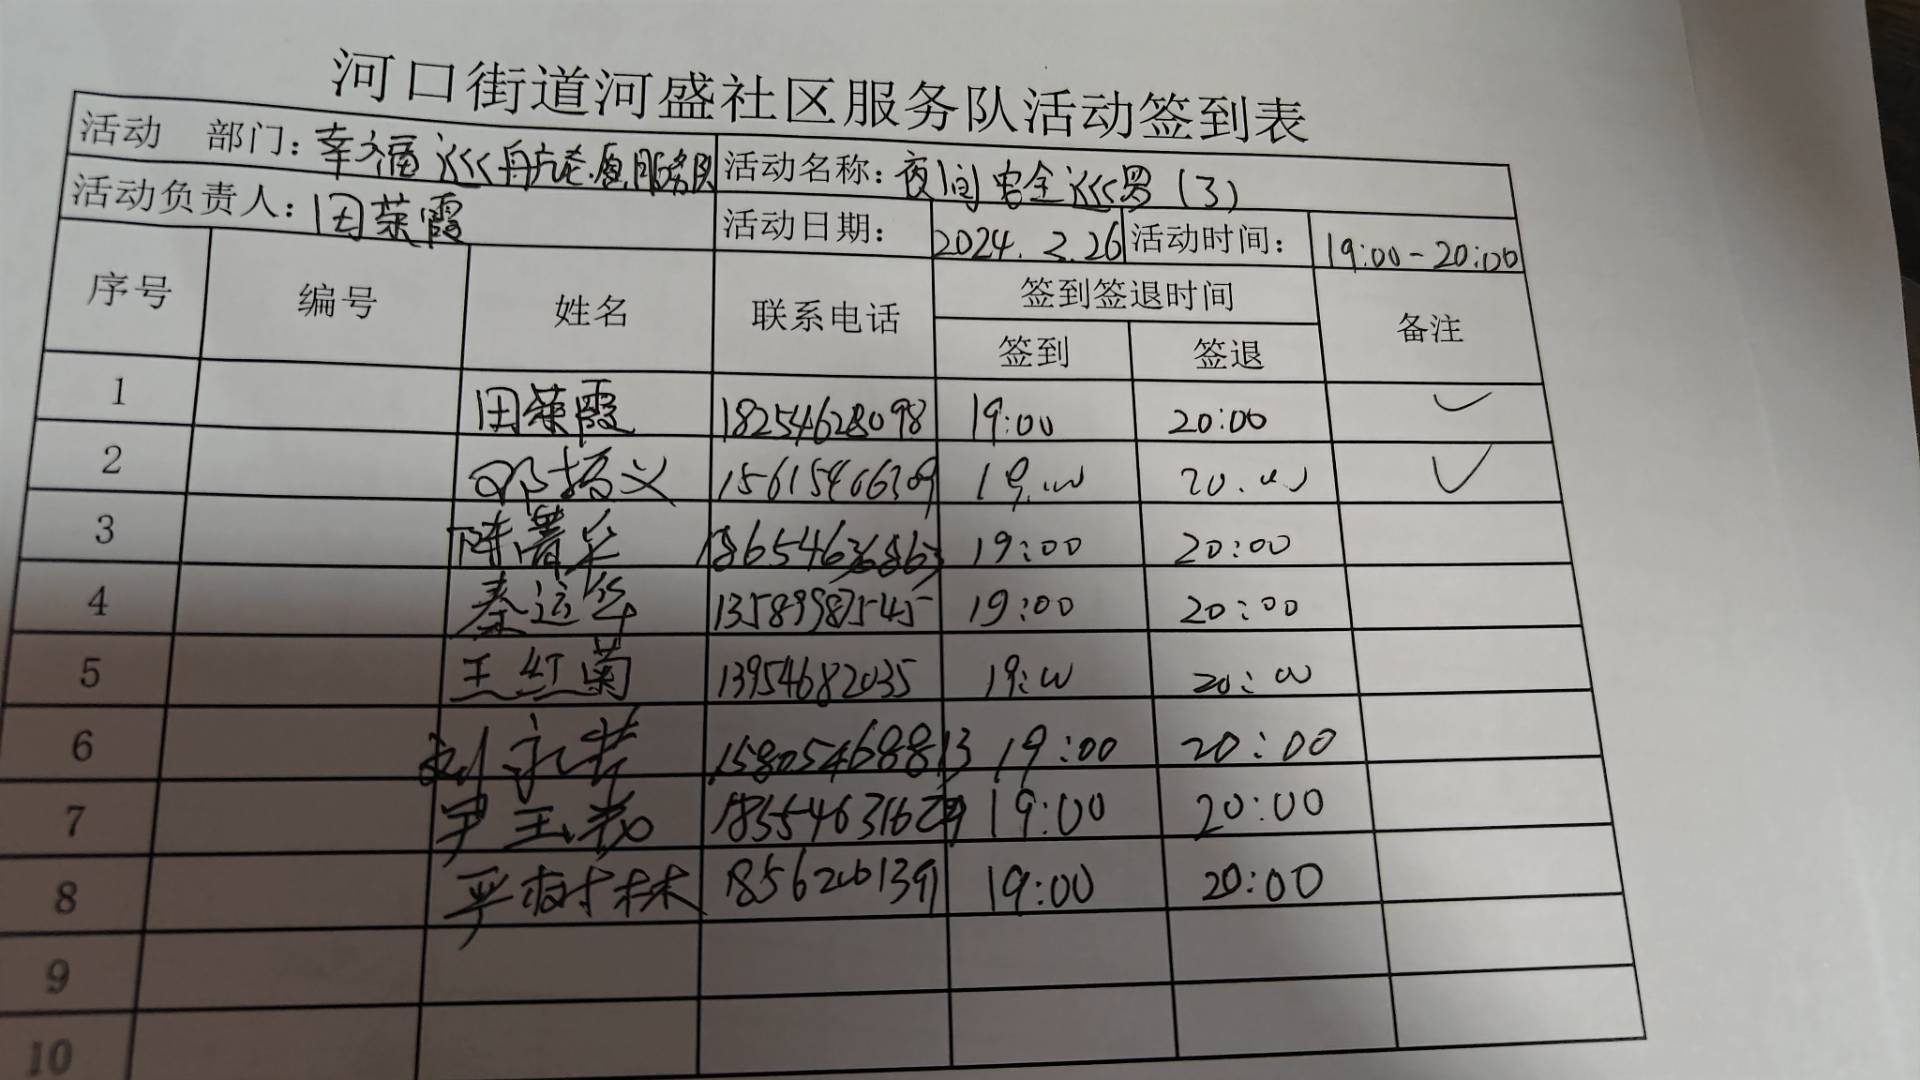 河口街道河盛社区服务队活动签到表
活动 部门：幸福巡舟志愿服务队 活动名称：夜间安全巡逻（3）
活动负责人：田荣霞 活动日期： 2024.3.26 活动时间： 19:00-20:00
序号 编号 姓名 联系电话 签到签退时间 备注
签到 签退
1 田荣霞 18254628098 19:00 20:00 ✓
2 邓振义 15615406309 19:00 20:00 ✓
3 陈 华 18654636863 19:00 20:00
4 秦运华 13589987545 19:00 20:00
5 王红菊 13954682035 19:00 20:00
6 刘永芹 15805468813 19:00 20:00
7 尹玉 19:00 20:00
8 严树林 19:00 20:00
9
10